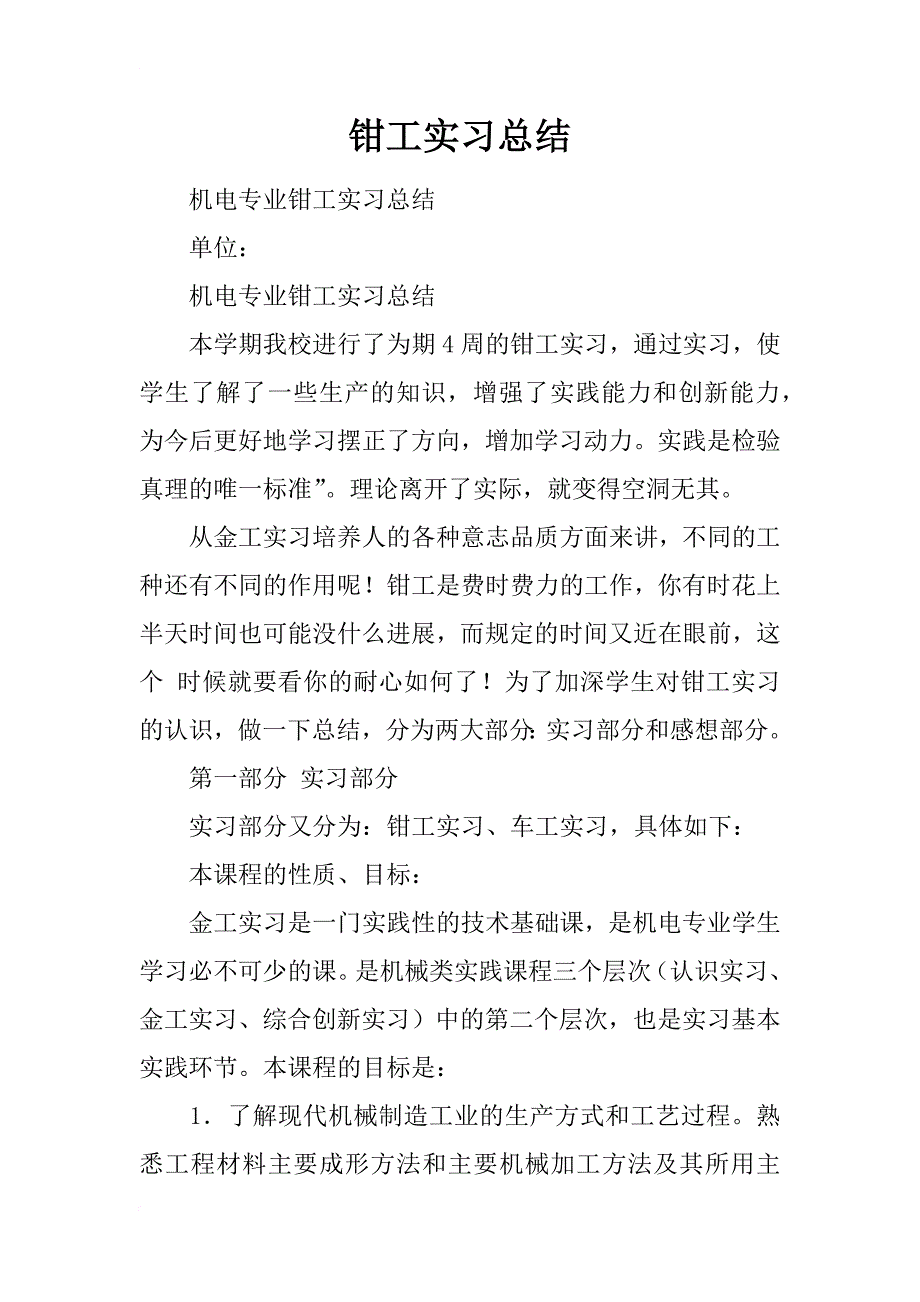 钳工实习总结
机电专业钳工实习总结
单位：
机电专业钳工实习总结
本学期我校进行了为期 4 周的钳工实习，通过实习，使
学生了解了一些生产的知识，增强了实践能力和创新能力，
为今后更好地学习摆正了方向，增加学习动力。实践是检验
真理的唯一标准”。理论离开了实际，就变得空洞无其。
从金工实习培养人的各种意志品质方面来讲，不同的工
种还有不同的作用呢！钳工是费时费力的工作，你有时花上
半天时间也可能没什么进展，而规定的时间又近在眼前，这
个 时候就要看你的耐心如何了！为了加深学生对钳工实习
的认识，做一下总结，分为两大部分：实习部分和感想部分。
第一部分 实习部分
实习部分又分为：钳工实习、车工实习，具体如下：
本课程的性质、目标：
金工实习是一门实践性的技术基础课，是机电专业学生
学习必不可少的课。是机械类实践课程三个层次（认识实习、
金工实习、综合创新实习）中的第二个层次，也是实习基本
实践环节。本课程的目标是：
1．了解现代机械制造工业的生产方式和工艺过程。熟
悉工程材料主要成形方法和主要机械加工方法及其所用主